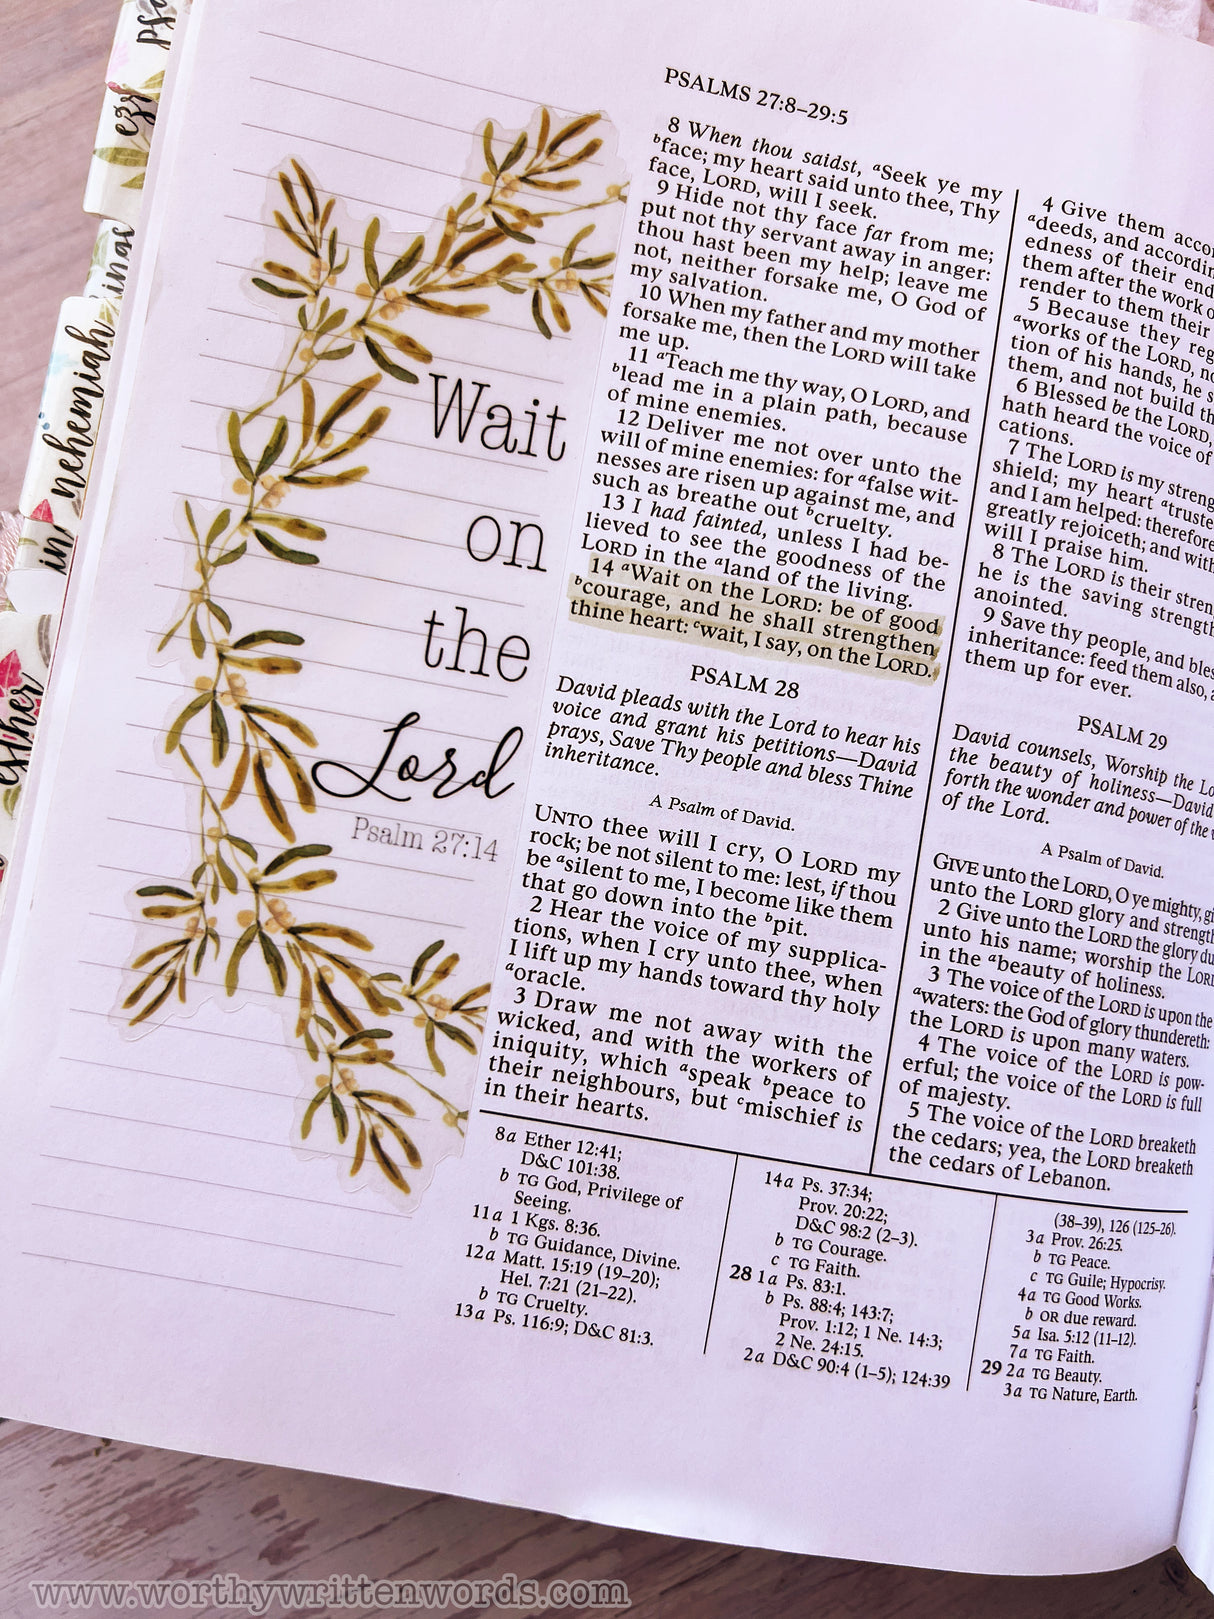 psa
ezr
nehemiah
esther
Wait
on
the
Lord
Psalm 27:14
PSALMS 27:8–29:5
8 When thou saidst, aSeek ye my
bface; my heart said unto thee, Thy
face, LORD, will I seek.
9 Hide not thy face far from me;
put not thy servant away in anger:
thou hast been my help; leave me
not, neither forsake me, O God of
my salvation.
10 When my father and my mother
forsake me, then the LORD will take
me up.
11 aTeach me thy way, O LORD, and
blead me in a plain path, because
of mine enemies.
12 Deliver me not over unto the
will of mine enemies: for afalse wit-
nesses are risen up against me, and
such as breathe out bcruelty.
13 I had fainted, unless I had be-
lieved to see the goodness of the
LORD in the aland of the living.
14 aWait on the LORD: be of good
bcourage, and he shall strengthen
thine heart: cwait, I say, on the LORD.
PSALM 28
David pleads with the Lord to hear his
voice and grant his petitions—David
prays, Save Thy people and bless Thine
inheritance.
A Psalm of David.
UNTO thee will I cry, O LORD my
rock; be not silent to me: lest, if thou
be asilent to me, I become like them
that go down into the bpit.
2 Hear the voice of my supplica-
tions, when I cry unto thee, when
I lift up my hands toward thy holy
aoracle.
3 Draw me not away with the
wicked, and with the workers of
iniquity, which aspeak bpeace to
their neighbours, but cmischief is
in their hearts.
4 Give them accor
adeeds, and accordin
edness of their end
them after the work o
render to them their
5 Because they reg
aworks of the LORD, no
tion of his hands, he s
them, and not build th
6 Blessed be the LORD,
hath heard the voice of
cations.
7 The LORD is my streng
shield; my heart atruste
and I am helped: therefore
greatly rejoiceth; and with
will I praise him.
8 The LORD is their stren
he is the saving strength
anointed.
9 Save thy people, and bles
inheritance: feed them also, a
them up for ever.
PSALM 29
David counsels, Worship the Lo
the beauty of holiness—David
forth the wonder and power of the v
of the Lord.
A Psalm of David.
GIVE unto the LORD, O ye mighty, gi
unto the LORD glory and strength
2 Give unto the LORD the glory du
unto his name; worship the LORD
in the abeauty of holiness.
3 The voice of the LORD is upon the
awaters: the God of glory thundereth:
the LORD is upon many waters.
4 The voice of the LORD is pow-
erful; the voice of the LORD is full
of majesty.
5 The voice of the LORD breaketh
the cedars; yea, the LORD breaketh
the cedars of Lebanon.
8a Ether 12:41;
D&C 101:38.
b TG God, Privilege of
Seeing.
11a 1 Kgs. 8:36.
b TG Guidance, Divine.
12a Matt. 15:19 (19–20);
Hel. 7:21 (21–22).
b TG Cruelty.
13a Ps. 116:9; D&C 81:3.
14a Ps. 37:34;
Prov. 20:22;
D&C 98:2 (2–3).
b TG Courage.
c TG Faith.
28 1a Ps. 83:1.
b Ps. 88:4; 143:7;
Prov. 1:12; 1 Ne. 14:3;
2 Ne. 24:15.
2a D&C 90:4 (1–5); 124:39
(38–39), 126 (125–26).
3a Prov. 26:25.
b TG Peace.
c TG Guile; Hypocrisy.
4a TG Good Works.
b OR due reward.
5a Isa. 5:12 (11–12).
7a TG Faith.
29 2a TG Beauty.
3a TG Nature, Earth.
www.worthywrittenwords.com